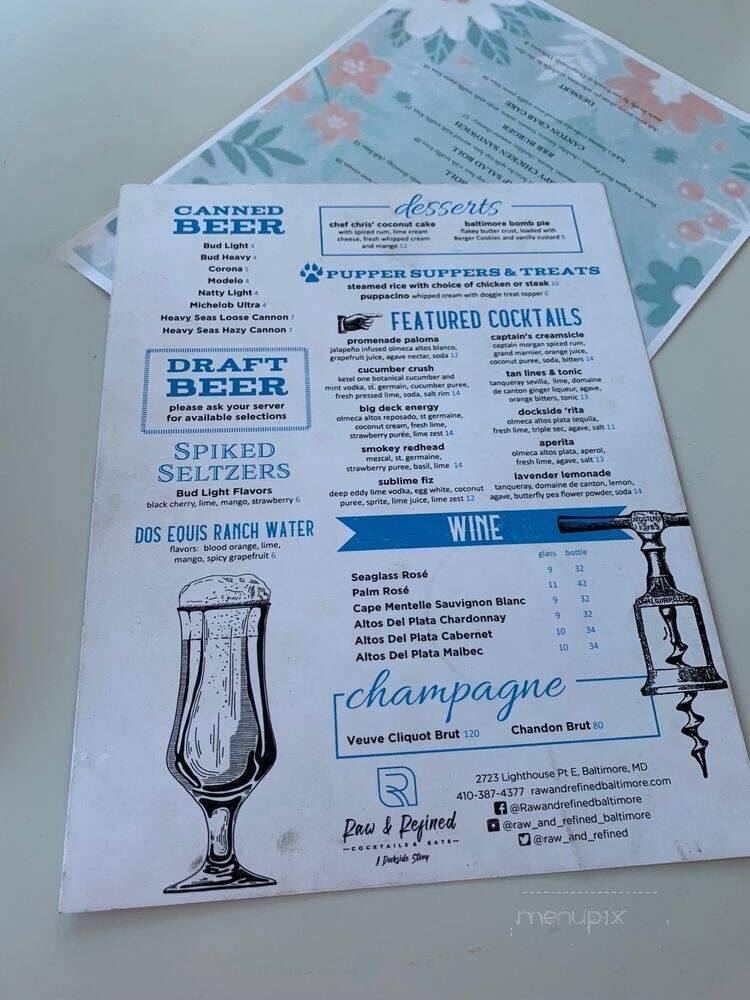 CANNED
BEER
Bud Light 4
Bud Heavy 4
Corona 5
Modelo 4
Natty Light 4
Michelob Ultra 4
Heavy Seas Loose Cannon 7
Heavy Seas Hazy Cannon 7
DRAFT
BEER
please ask your server
for available selections
SPIKED
SELTZERS
Bud Light Flavors
black cherry, lime, mango, strawberry 6
DOS EQUIS RANCH WATER
flavors: blood orange, lime,
mango, spicy grapefruit 6
desserts
chef chris' coconut cake
with spiced rum, lime cream
cheese, fresh whipped cream
and mango 12
baltimore bomb pie
flakey butter crust, loaded with
Berger Cookies and vanilla custard 8
PUPPER SUPPERS & TREATS
steamed rice with choice of chicken or steak 10
puppacino whipped cream with doggie treat topper 6
FEATURED COCKTAILS
promenade paloma
jalapeño infused olmeca altos blanco,
grapefruit juice, agave nectar, soda 12
cucumber crush
ketel one botanical cucumber and
mint vodka, st. germain, cucumber puree,
fresh pressed lime, soda, salt rim 14
big deck energy
olmeca altos reposado, st germaine,
coconut cream, fresh lime,
strawberry purée, lime zest 14
smokey redhead
mezcal, st. germaine,
strawberry puree, basil, lime 14
sublime fiz
deep eddy lime vodka, egg white, coconut
puree, sprite, lime juice, lime zest 12
captain's creamsicle
captain morgan spiced rum,
grand marnier, orange juice,
coconut puree, soda, bitters 14
tan lines & tonic
tanqueray sevilla, lime, domaine
de canton ginger liqueur, agave,
orange bitters, tonic 13
dockside 'rita
olmeca altos plata tequila,
fresh lime, triple sec, agave, salt 11
aperita
olmeca altos plata, aperol,
fresh lime, agave, salt 13
lavender lemonade
tanqueray, domaine de canton, lemon,
agave, butterfly pea flower powder, soda 14
WINE
glass bottle
Seaglass Rosé 9 32
Palm Rosé 11 42
Cape Mentelle Sauvignon Blanc 9 32
Altos Del Plata Chardonnay 9 32
Altos Del Plata Cabernet 10 34
Altos Del Plata Malbec 10 34
champagne
Veuve Cliquot Brut 120
Chandon Brut 80
Raw & Refined
COCKTAILS & EATS
A Dockside Story
2723 Lighthouse Pt E, Baltimore, MD
410-387-4377 rawandrefinedbaltimore.com
@Rawandrefinedbaltimore
@raw_and_refined_baltimore
@raw_and_refined
menupix
DESSERT
CANTON CRAB CAKE
RRR BURGER
SPY CHICKEN SANDWICH
P SALAD ROLL
ROLL